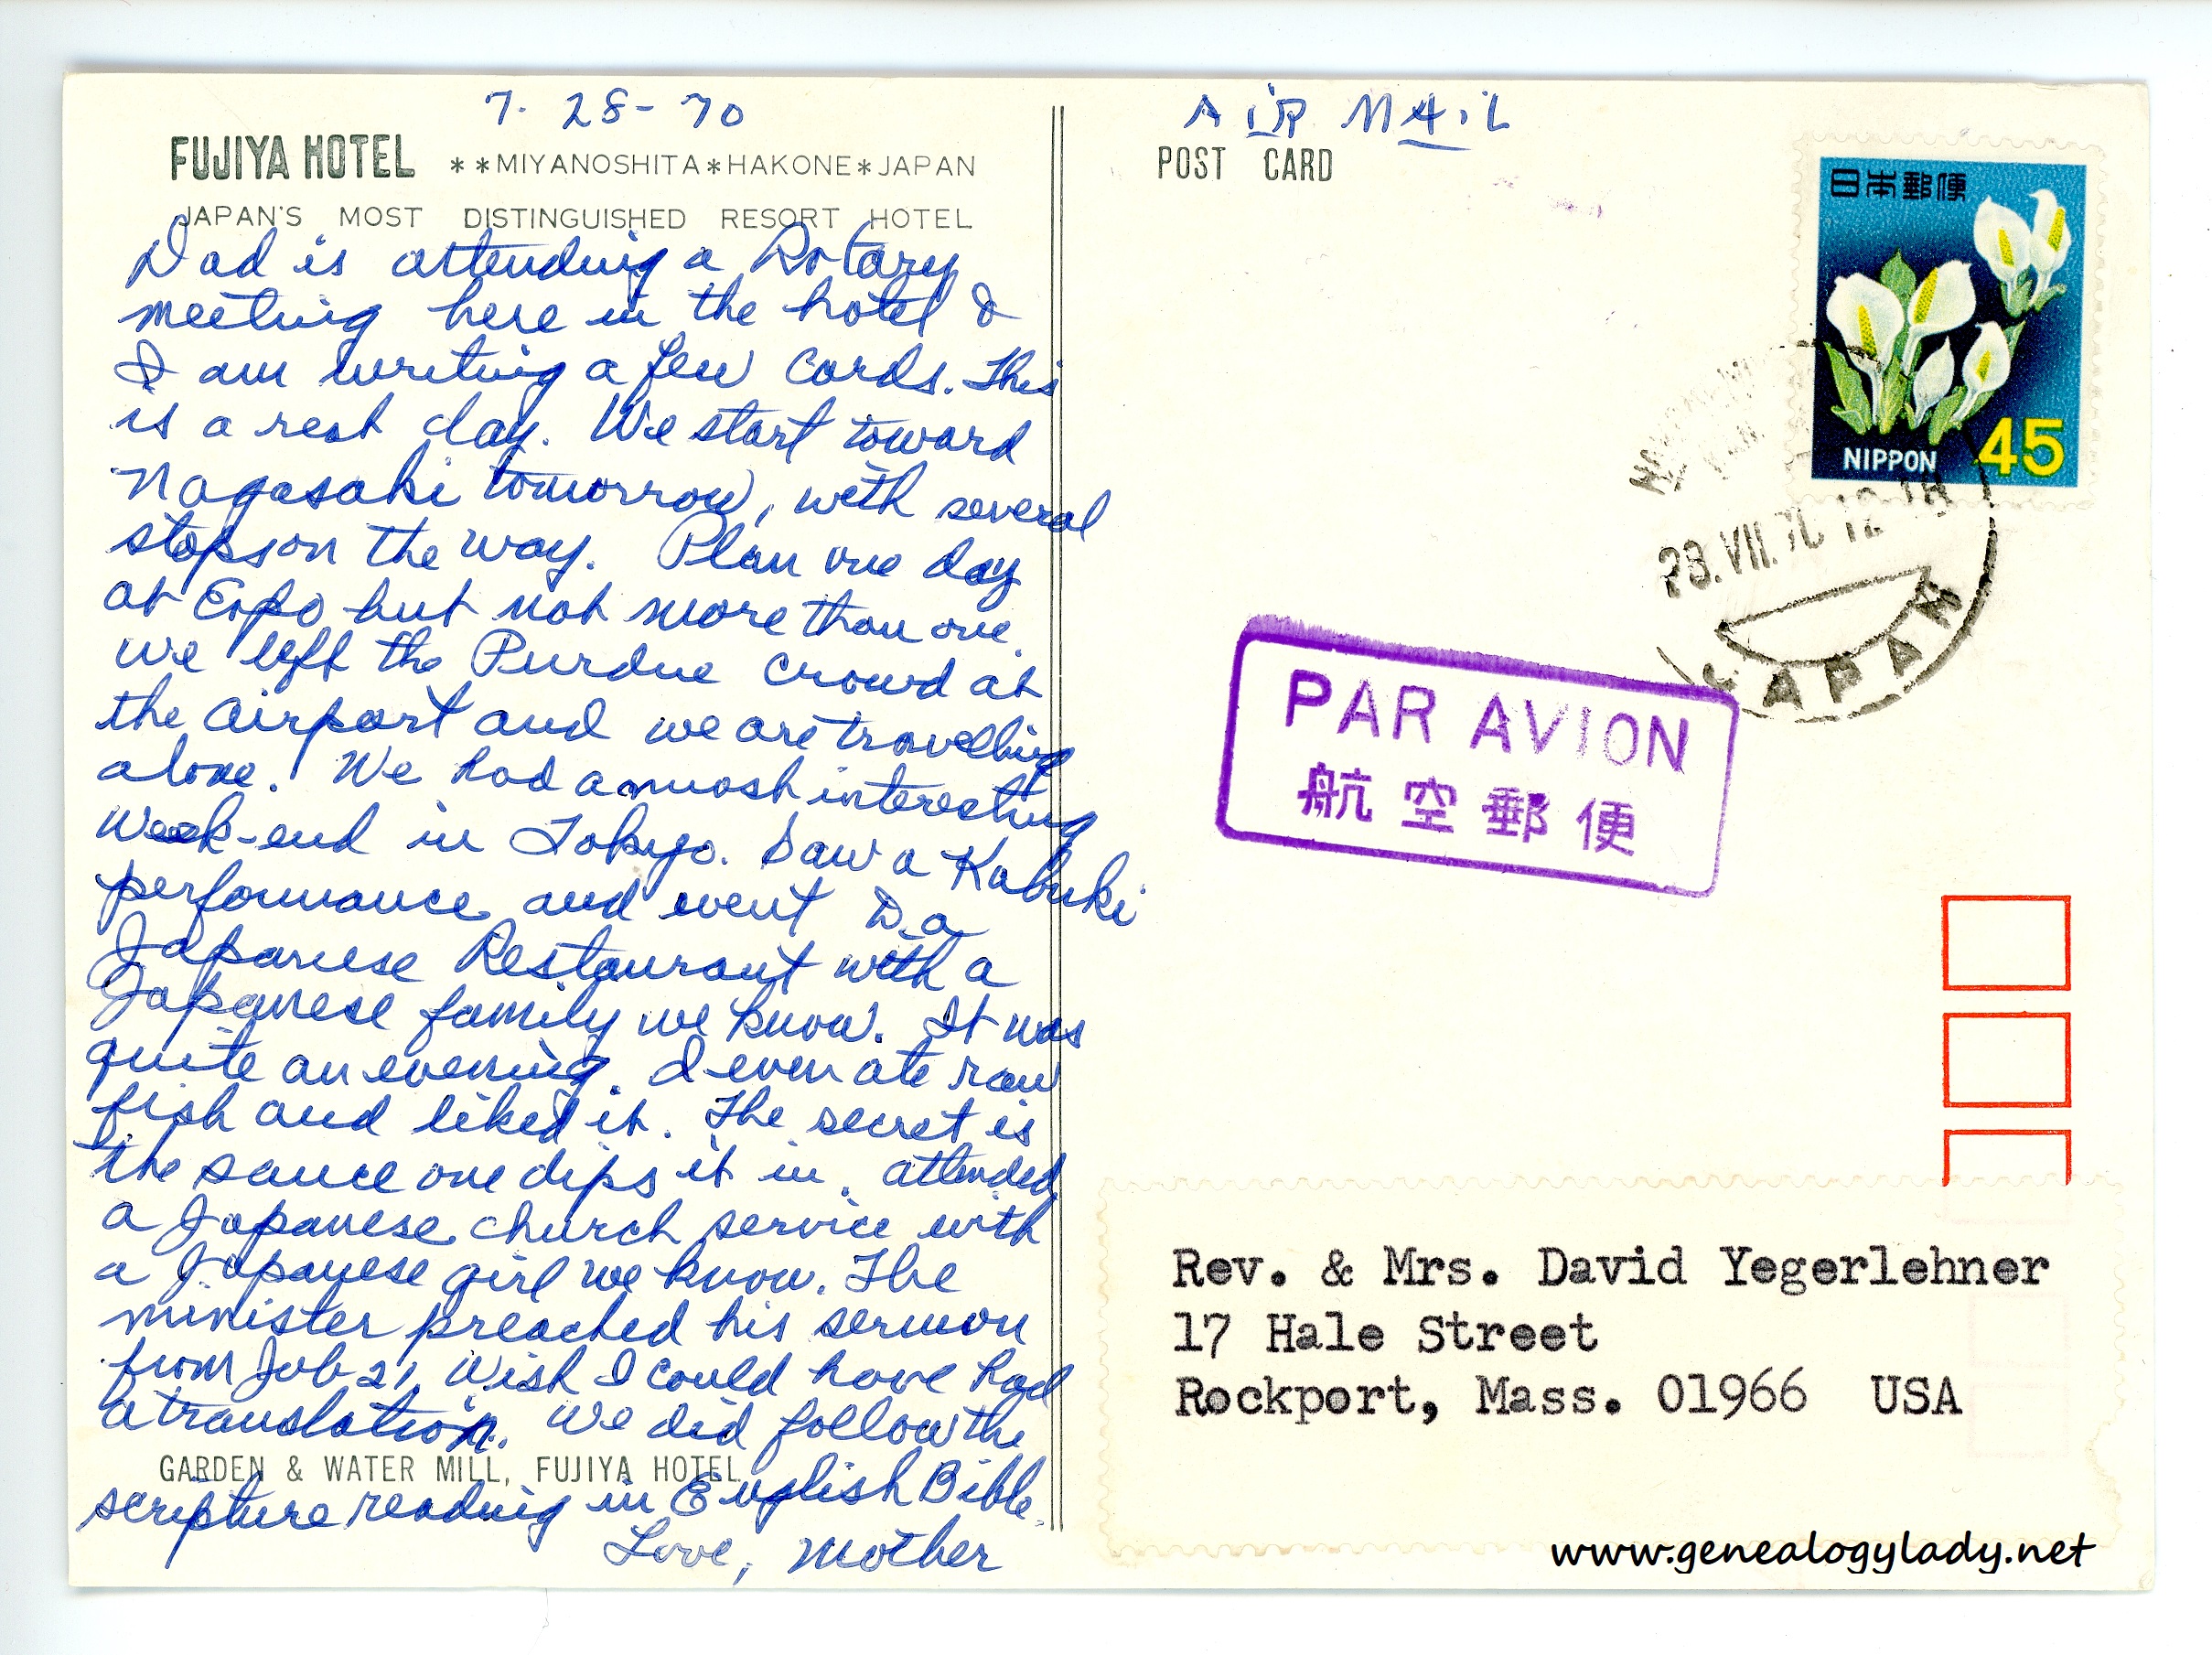 7. 28-70
FUJIYA HOTEL **MIYANOSHITA*HAKONE*JAPAN
JAPAN'S MOST DISTINGUISHED RESORT HOTEL
Dad is attending a Rotary
meeting here in the hotel &
I am writing a few cards. This
is a rest day. We start toward
Nagasaki tomorrow, with several
stops on the way. Plan one day
at Expo but not more than one.
We left the Purdue crowd at
the airport and we are travelling
alone. We had a most interesting
week-end in Tokyo. Saw a Kabuki
performance and went to a
Japanese Restaurant with a
Japanese family we know. It was
quite an evening. I even ate raw
fish and liked it. The secret is
the sauce one dips it in. Attended
a Japanese church service with
a Japanese girl we know. The
minister preached his sermon
from Job 21. Wish I could have had
a translation. We did follow the
GARDEN & WATER MILL, FUJIYA HOTEL
scripture reading in English Bible.
Love, Mother
AIR MAIL
POST CARD
日本郵便
NIPPON 45
28.VII.70 12-18
JAPAN
PAR AVION
航空郵便
Rev. & Mrs. David Yegerlehner
17 Hale Street
Rockport, Mass. 01966 USA
www.genealogylady.net